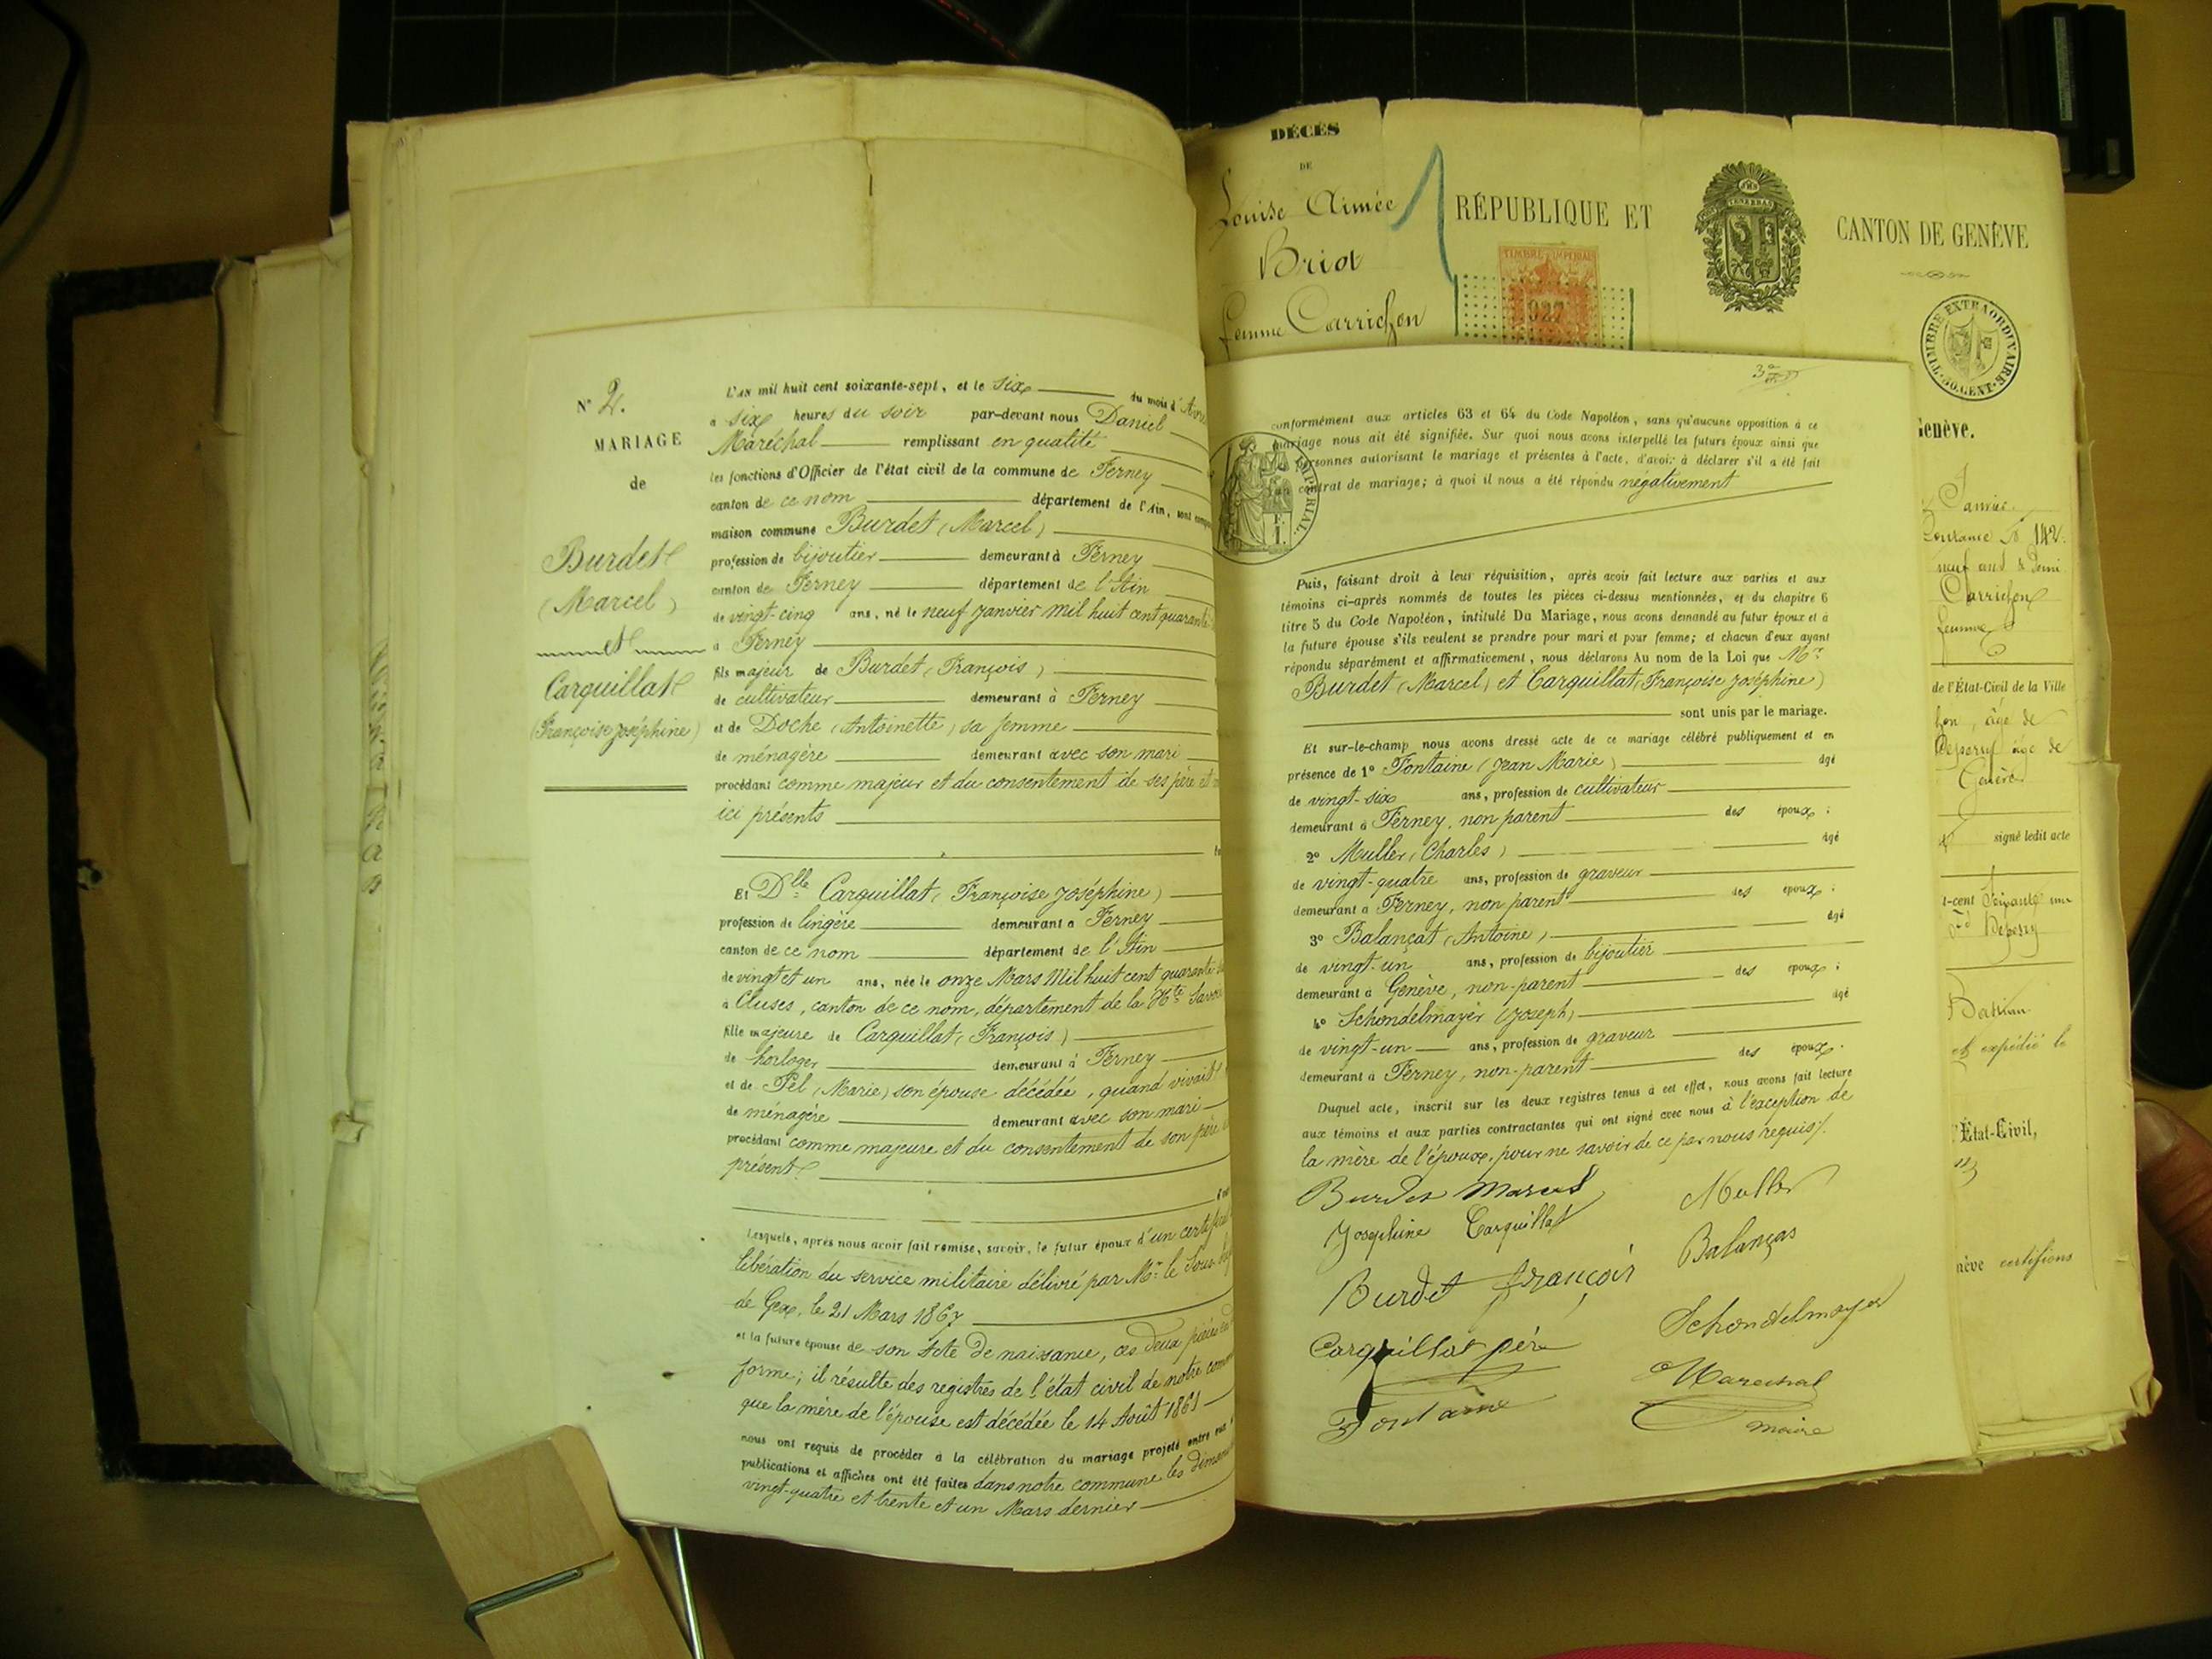 N° 2.
MARIAGE
de
Burdet
(Marcel)
et
Carquillat
(Françoise Joséphine)
L'an mil huit cent soixante-sept, et le six du mois d'Avril
à six heures du soir par-devant nous Daniel
Maréchal remplissant en qualité
les fonctions d'Officier de l'état civil de la commune de Ferney
canton de ce nom département de l'Ain, sont
maison commune Burdet (Marcel)
profession de bijoutier demeurant à Ferney
canton de Ferney département de l'Ain
de vingt-cinq ans, né le neuf Janvier mil huit cent quarante
à Ferney
fils majeur de Burdet (François)
de cultivateur demeurant à Ferney
et de Doche (Antoinette) sa femme
de ménagère demeurant avec son mari
procédant comme majeur et du consentement de ses père et
ici présents
Et Dlle Carquillat (Françoise Joséphine)
profession de lingère demeurant à Ferney
canton de ce nom département de l'Ain
de vingt et un ans, née le onze Mars Mil huit cent quarante
à Cluses, canton de ce nom, département de la Hte Savoie
fille majeure de Carquillat (François)
de horloger demeurant à Ferney
et de Pel (Marie) son épouse décédée, quand vivait
de ménagère demeurant avec son mari
procédant comme majeure et du consentement de son père
présent
Lesquels, après nous avoir fait remise, savoir, le futur époux d'un certificat
libération du service militaire délivré par Mr le Sous
de Gex, le 21 Mars 1867
et la future épouse de son Acte de naissance, ces deux pièces en
forme; il résulte des registres de l'état civil de notre commune
que la mère de l'épouse est décédée le 14 Août 1861
nous ont requis de procéder à la célébration du mariage projeté entre eux
publications et affiches ont été faites dans notre commune les dimanches
vingt-quatre et trente et un Mars dernier
DÉCÈS
DE
Louise Aimée
Briot
femme Carrichon
1
RÉPUBLIQUE ET
CANTON DE GENÈVE
TIMBRE IMPÉRIAL
927
TIMBRE EXTRAORDINAIRE
50. CENT.
conformément aux articles 63 et 64 du Code Napoléon, sans qu'aucune opposition à ce
mariage nous ait été signifiée. Sur quoi nous avons interpellé les futurs époux ainsi que
personnes autorisant le mariage et présentes à l'acte, d'avoir à déclarer s'il a été fait
contrat de mariage; à quoi il nous a été répondu négativement
IMPERIAL.
1 F.
Puis, faisant droit à leur réquisition, après avoir fait lecture aux parties et aux
témoins ci-après nommés de toutes les pièces ci-dessus mentionnées, et du chapitre 6
titre 5 du Code Napoléon, intitulé Du Mariage, nous avons demandé au futur époux et à
la future épouse s'ils veulent se prendre pour mari et pour femme; et chacun d'eux ayant
répondu séparément et affirmativement, nous déclarons Au nom de la Loi que Mr
Burdet (Marcel) et Carquillat (Françoise Joséphine)
sont unis par le mariage.
Et sur-le-champ nous avons dressé acte de ce mariage célébré publiquement et en
présence de 1° Fontaine (Jean Marie) âgé
de vingt-six ans, profession de cultivateur
demeurant à Ferney, non parent des époux;
2° Muller (Charles) âgé
de vingt-quatre ans, profession de graveur
demeurant à Ferney, non parent des époux;
3° Balançat (Antoine) âgé
de vingt-un ans, profession de bijoutier
demeurant à Genève, non-parent des époux;
4° Schondelmayer (Joseph) âgé
de vingt-un ans, profession de graveur
demeurant à Ferney, non-parent des époux.
Duquel acte, inscrit sur les deux registres tenus à cet effet, nous avons fait lecture
aux témoins et aux parties contractantes qui ont signé avec nous à l'exception de
la mère de l'époux, pour ne savoir de ce par nous requis.
Burdet Marcel
Muller
Josephine Carquillat
Balanças
Burdet françois
Schondelmayer
Carquillat père
Marechal
Fontaine
maire
Genève.
142
neuf ans & demi
Carrichon
femme
de l'État-Civil de la Ville
âge de
âge de
Genève
signé ledit acte
t-cent
et expédié le
l'État-Civil,
nève certifions